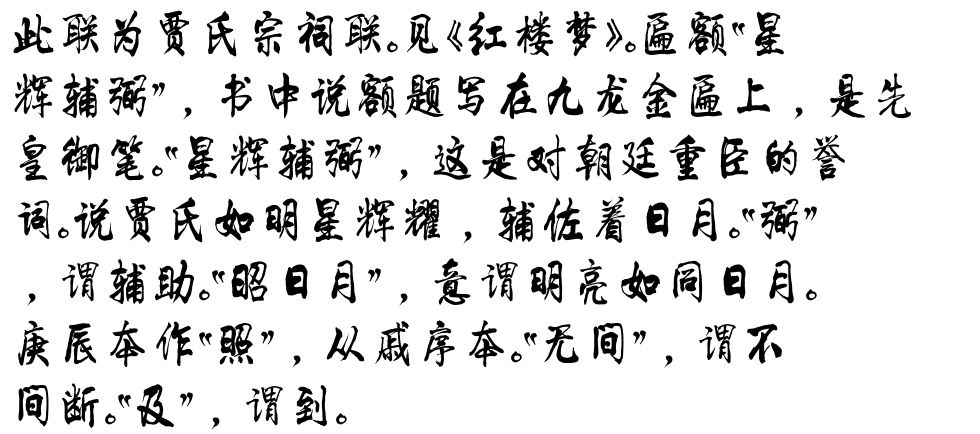 此联为贾氏宗祠联。见《红楼梦》。匾额“星
辉辅弼”，书中说额题写在九龙金匾上，是先
皇御笔。“星辉辅弼”，这是对朝廷重臣的誉
词。说贾氏如明星辉耀，辅佐着日月。“弼”
，谓辅助。“昭日月”，意谓明亮如同日月。
庚辰本作“照”，从戚序本。“无间”，谓不
间断。“及”，谓到。